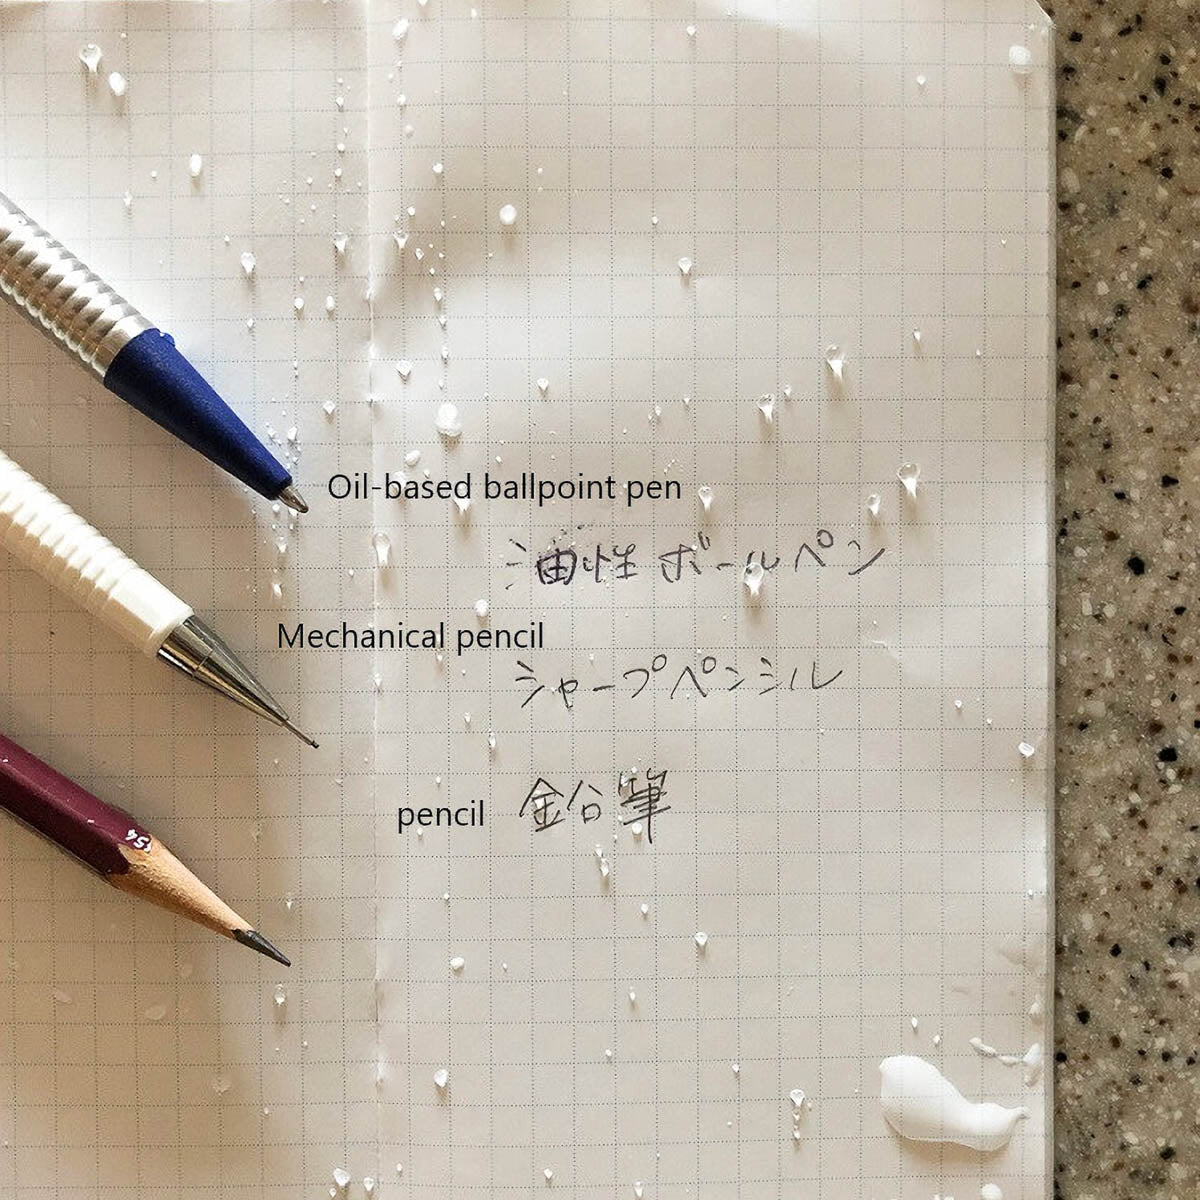 Oil-based ballpoint pen
油性ボールペン
Mechanical pencil
シャープペンシル
pencil 鉛筆